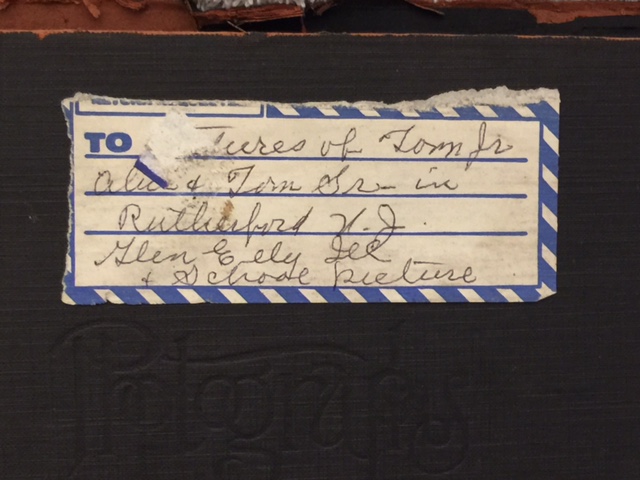 TO
tures of Tom Jr
Alice & Tom Sr - in
Rutherford N.J.
Glen Eely Ill
& School picture
Photographs